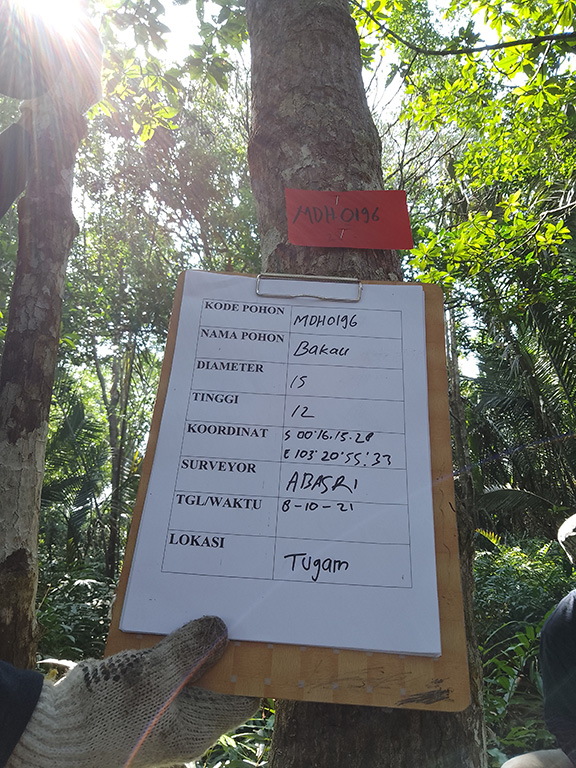 MDH0196
KODE POHON MDH0196
NAMA POHON Bakau
DIAMETER 15
TINGGI 12
KOORDINAT S 00°16.15.28
E 103°20'55'.33
SURVEYOR ABASRI
TGL/WAKTU 8-10-21
LOKASI Tugam